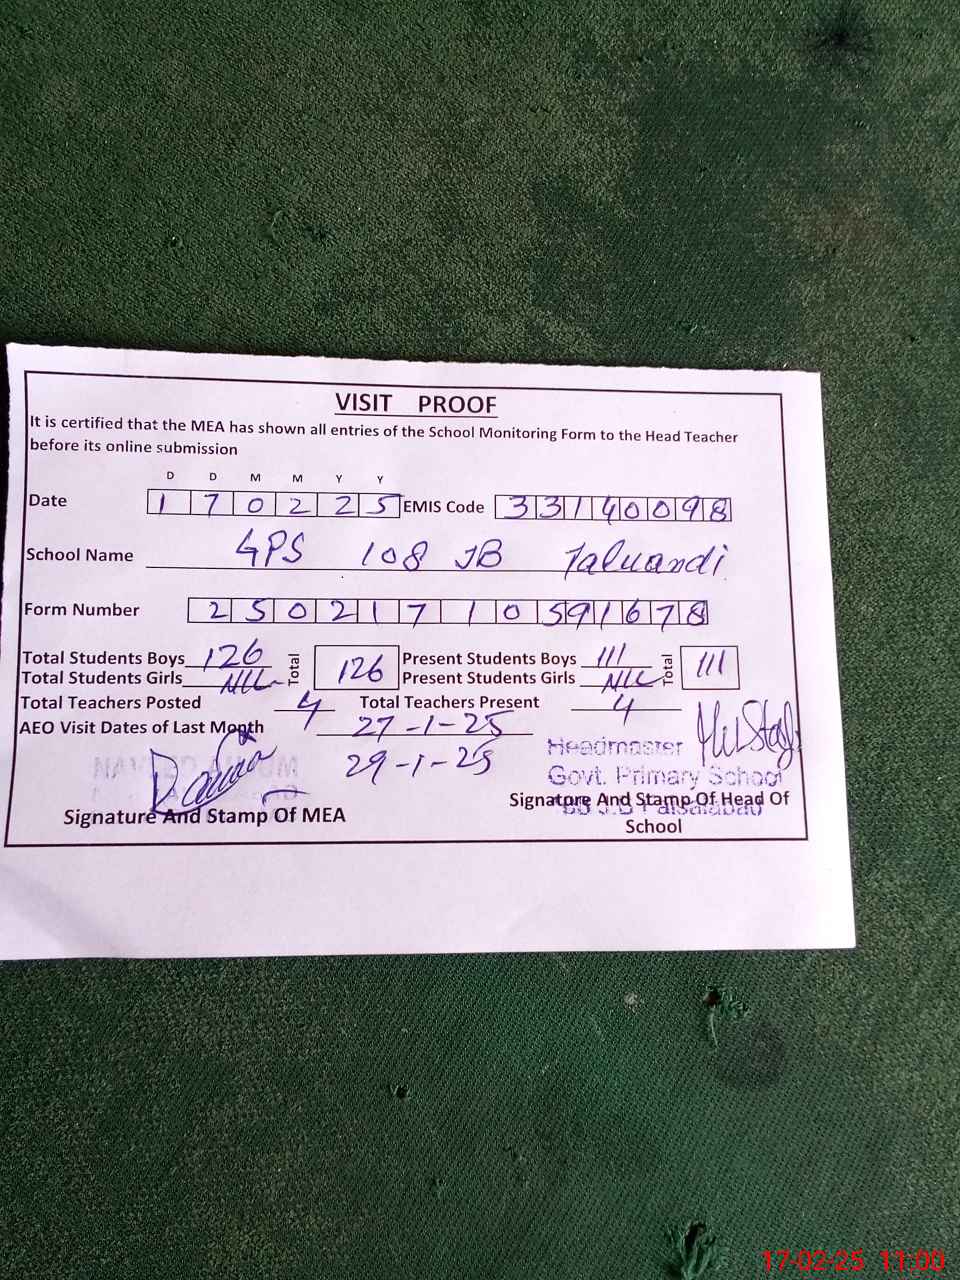 VISIT PROOF
It is certified that the MEA has shown all entries of the School Monitoring Form to the Head Teacher
before its online submission
D D M M Y Y
Date 1 7 0 2 2 5 EMIS Code 3 3 1 4 0 0 9 8
School Name GPS 108 JB Taluandi
Form Number 2 5 0 2 1 7 1 0 5 9 1 6 7 8
Total Students Boys 126 Total 126 Present Students Boys 111 Total 111
Total Students Girls NIL Present Students Girls NIL
Total Teachers Posted 4 Total Teachers Present 4
AEO Visit Dates of Last Month 27-1-25
29-1-25
Headmaster
Govt. Primary School
Faisalabad
Signature And Stamp Of MEA
Signature And Stamp Of Head Of
School
17-02-25 11:00